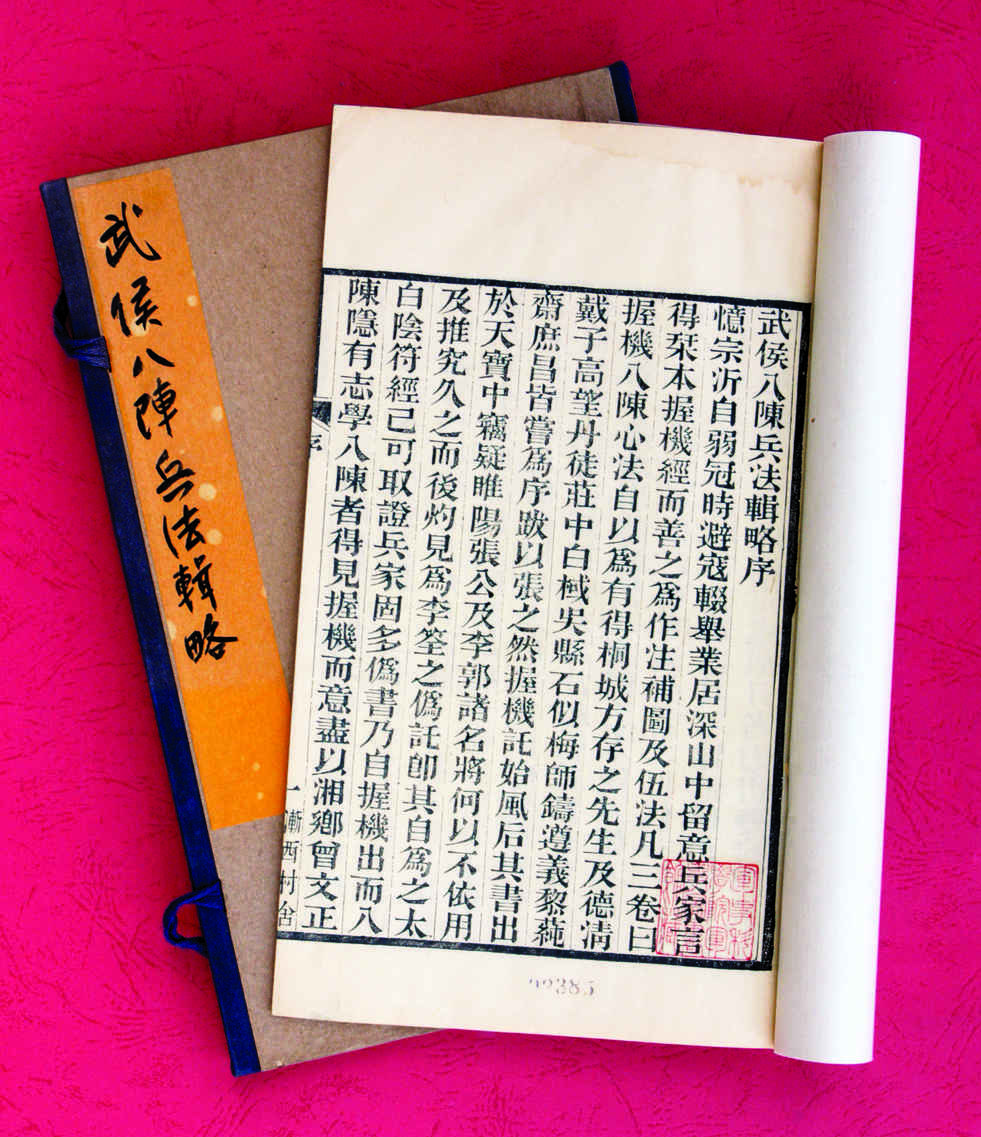 武侯八陣兵法輯略
武侯八陳兵法輯略序
憶宗沂自弱冠時避寇輟舉業居深山中留意兵家言
得栞本握機經而善之為作注補圖及伍法凡三卷曰
握機八陳心法自以為有得桐城方存之先生及德清
戴子高望丹徒莊中白棫吳縣石似梅師鑄遵義黎蒓
齋庶昌皆嘗為序跋以張之然握機託始風后其書出
於天寶中竊疑睢陽張公及李郭諸名將何以不依用
及推究久之而後灼見為李筌之偽託卽其自為之太
白陰符經已可取證兵家固多偽書乃自握機出而八
陳隱有志學八陳者得見握機而意盡以湘鄉曾文正
序
一
漸西村舍